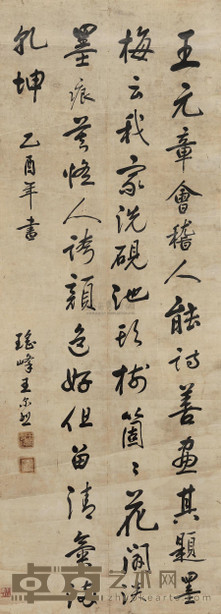 王元章會稽人能詩善畫其題墨
梅云我家洗硯池頭樹箇箇花開淡
墨痕莫恠人誇顏色好但留清氣滿
乾坤
乙酉年書
瑤峰王爾烈